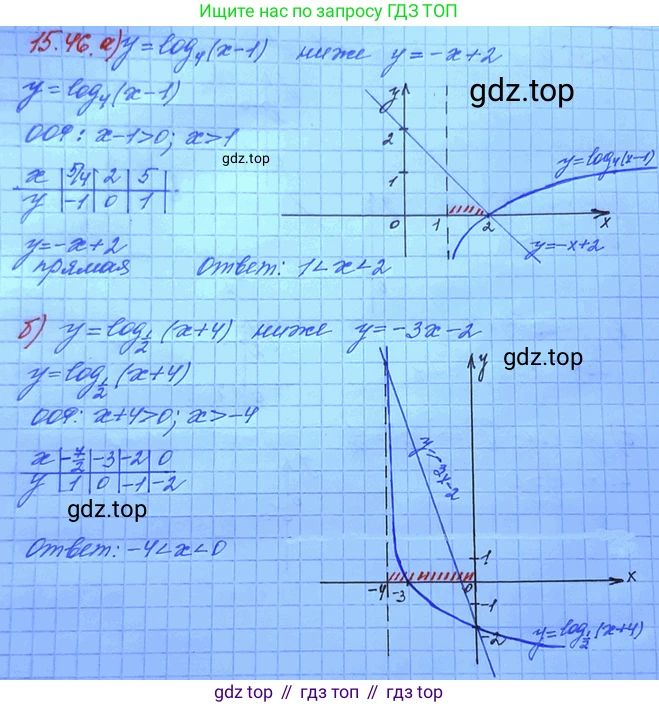 Ищите нас по запросу ГДЗ ТОП
15.46. а) y = log₄(x-1) ниже y = -x+2
y = log₄(x-1)
ООФ: x-1>0; x>1
x | 5/4 | 2 | 5
y | -1 | 0 | 1
y = -x+2
прямая
Ответ: 1<x<2
y
2
1
0
1
2
x
y=log₄(x-1)
y=-x+2
gdz.top
gdz.top
б) y = log½(x+4) ниже y = -3x-2
y = log½(x+4)
ООФ: x+4>0; x>-4
x | -7/2 | -3 | -2 | 0
y | 1 | 0 | -1 | -2
gdz.top
Ответ: -4<x<0
gdz.top
y
y=-3x-2
1
-4
-3
0
x
-1
-2
y=log½(x+4)
gdz.top // гдз топ // gdz top